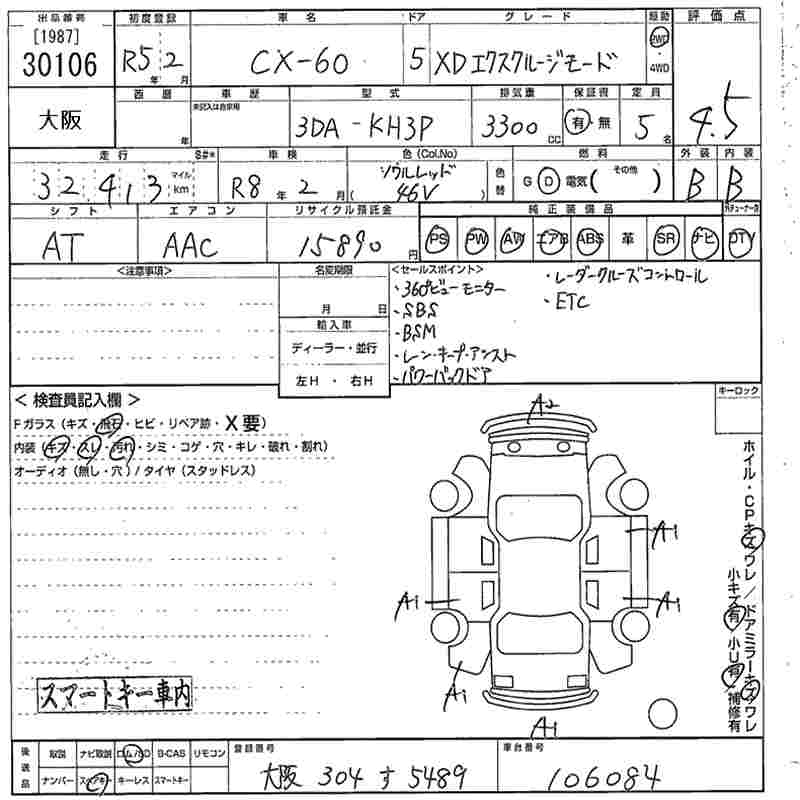 出品番号 初度登録 車名 ドア グレード 駆動 評価点
[1987]
30106 R5年 2月 CX-60 5 XD エクスクルージモード 2WD・4WD 4.5
大阪 西暦 年 車歴 未記入は自家用 型式 排気量 保証書 定員
3DA-KH3P 3300cc 有・無 5名
走行 S#* 車検 色(Col.No) 燃料 外装 内装
32,413 マイル km R8年 2月 ソウルレッド 色替 G D 電気 (その他) B B
(46V)
シフト エアコン リサイクル預託金 純正装備品
AT AAC 15890円 PS PW AW エアB ABS 革 SR ナビ DTV
<注意事項> 名変期限 <セールスポイント>
・360°ビューモニター ・レーダークルーズコントロール
月 日 ・SBS ・ETC
輸入車 ・BSM
ディーラー・並行 ・レーン・キープ・アシスト
左H・右H ・パワーバックドア
キーロック
< 検査員記入欄 >
Fガラス (キズ・飛石・ヒビ・リペア跡・X要)
内装 (キズ・スレ・汚れ・シミ・コゲ・穴・キレ・破れ・割れ)
オーディオ (無し・穴) / タイヤ (スタッドレス)
A2
A1
A1 A1
A1
A1
ホイル・CPキズワレ/ドアミラーキズワレ
小キズ有 小U有 補修有
スマートキー車内
後送品 取説 ナビ取説 ロム/SD B-CAS リモコン 登録番号 車台番号
ナンバー スペアキー キーレス スマートキー 大阪 304 す 5489 106084